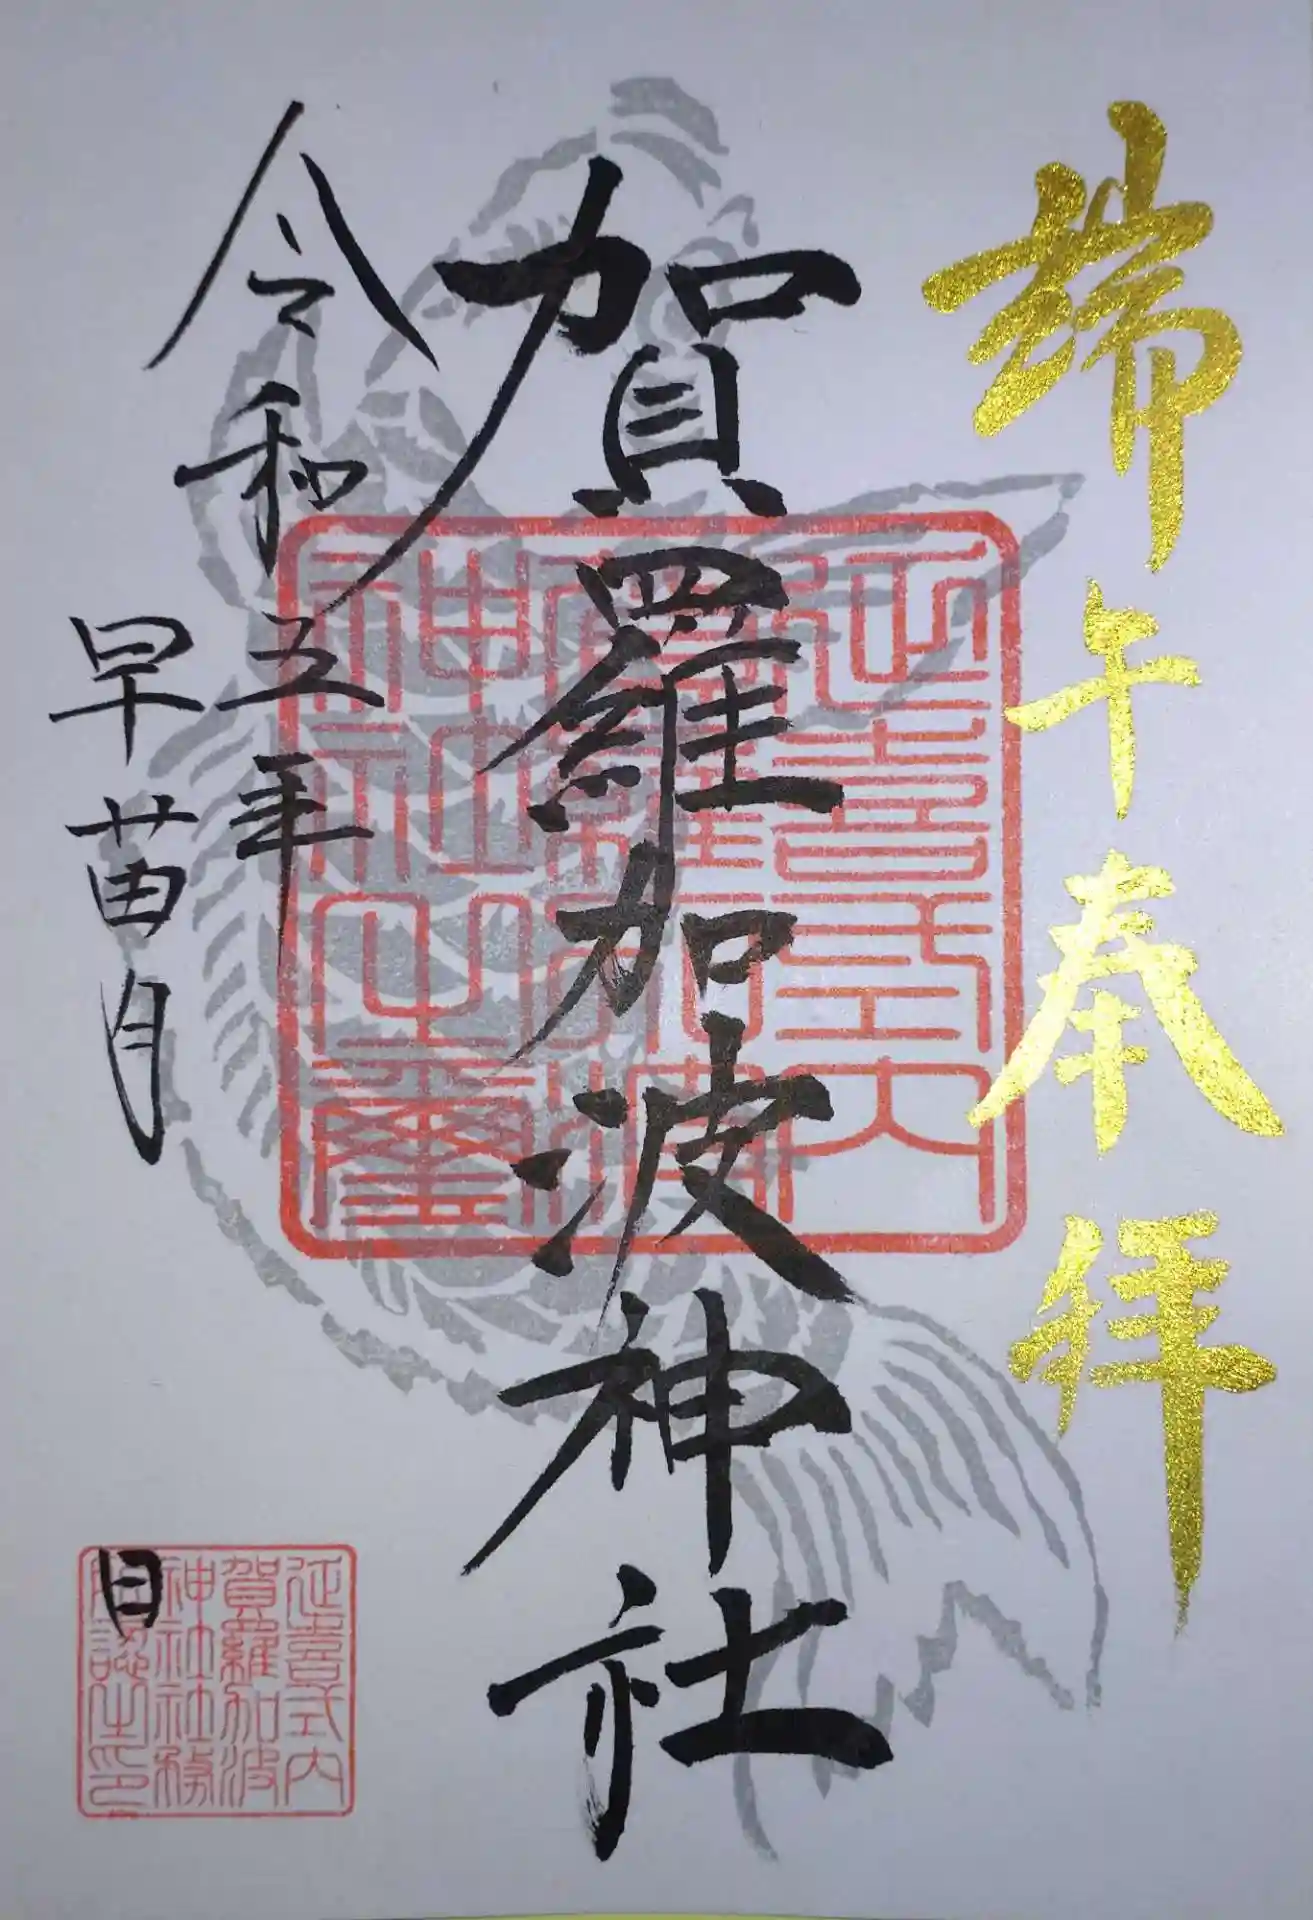 端午奉拝
賀羅加波神社
令和五年
早苗月
日
延喜式内
賀羅加波
神社之璽
延喜式内
賀羅加波
神社社務
所認之印